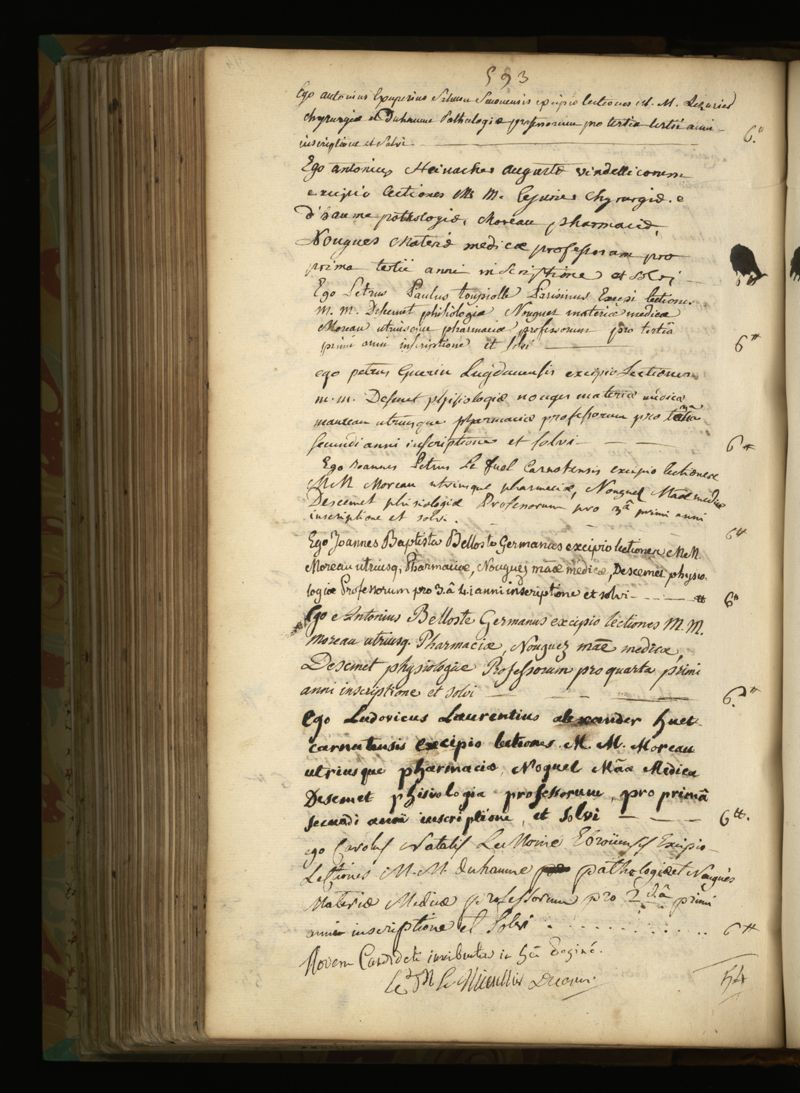 593
Ego antonius Exuperius Salmon Senonensis excipio lectiones M. M. Lezurier
chyrurgiæ et Duhaume Pathologiæ professorum pro tertia tertii anni
inscriptione et solvi 6.tt
Ego antonius augustæ vindellicorum
excipio lectiones MM M. chyrurgiæ. e
d'hauma pathologiæ, Moreau pharmaciæ,
Nougues Materiæ medicæ professoram pro
prima tertii anni inscriptione et solvi
Ego Petrus Paulus toupiolle Parisinus Excepi lectiones
M. M. Desemet phisiologiæ Nougues materiæ medicæ
Moreau utriusque pharmaciæ professorum pro tertiâ
primi anni inscriptione et solvi 6tt
ego petrus Guerin Lugdunensis excipio Lectiones
m. m. Desemet phisiologiæ nouges materiæ medicæ
maureau utriusque pharmaciæ professorum pro tertia
secundi anni inscriptione et solvi 6tt
Ego Joannes Petrus Le fuel Carnotensis excipio lectiones
MM Moreau utriusque pharmaciæ, Nouguel Maæ medicæ
Descemet phisiologiæ Professorum pro 3â primi anni
inscriptione et solvi. 6tt
Ego Joannes Baptista Belloste Germanus excipio lectiones MM
Moreau utriusq; Pharmaciæ, Nouguez maæ medicæ, Descemet physio.
logiæ Professorum pro 3.â anni inscriptione et solvi 6tt
Ego Antonius Belloste Germanus excipio lectiones M. M.
Moreau utriusq. Pharmaciæ, Nouguez maæ medicæ,
Descemet physiologiæ Professorum pro quarta primi
anni inscriptione et solvi 6.tt
Ego Ludovicus Laurentius alexander huet
carnutensis excipio lectiones M. M. Moreau
utriusque pharmaciæ, Noguel Mãa Medica
Desemet phisiologia professorum, pro primâ
secundi anni inscriptione, et solvi 6tt.
ego Carolus Natalis Le Moine Ebroïensis Excipio
Lectiones M. M. duhaume pathologiæ et Nougués
Materiæ Medicæ professorum pro 2dâ primi
anni inscriptione et Solvi 6tt
Novem Candidati in hâc paginâ.
Decan. 54